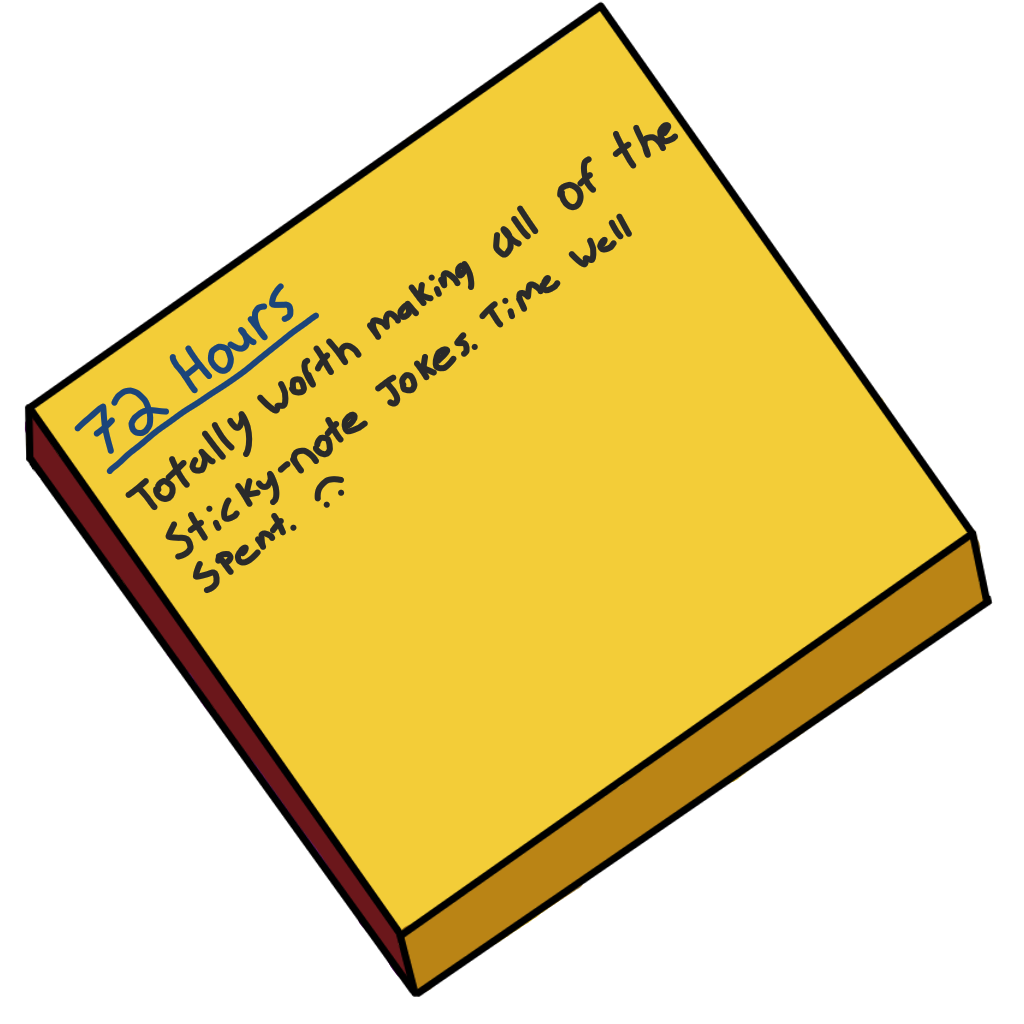 72 Hours
Totally Worth making all of the
Sticky-note Jokes. Time Well
Spent. 🙃